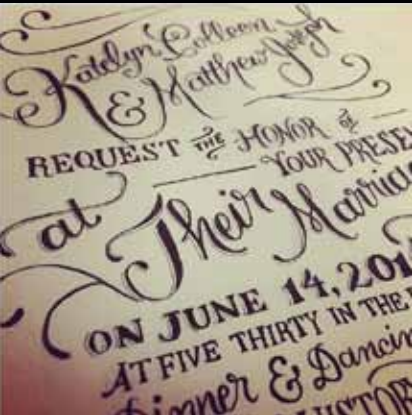 Katelyn Colleen
& Matthew Joseph
REQUEST THE HONOR of
YOUR PRESE
at Their Marria
ON JUNE 14, 201
AT FIVE THIRTY IN THE
Dinner & Dancin